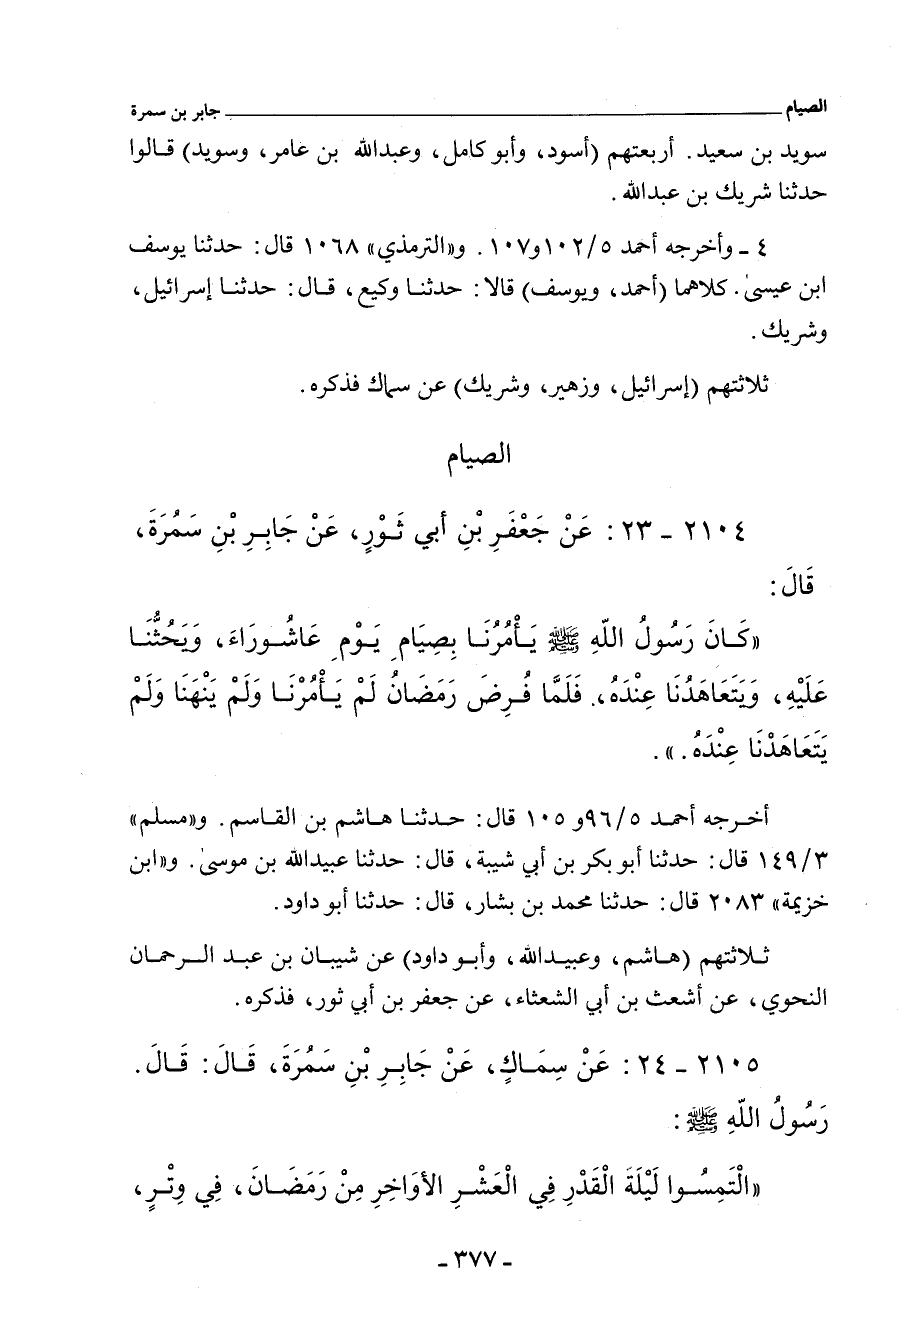 الصيام ــــــــــ جابر بن سمرة
سويد بن سعيد. أربعتهم (أسود، وأبو كامل، وعبدالله بن عامر، وسويد) قالوا
حدثنا شريك بن عبدالله.
٤ ـ وأخرجه أحمد ١٠٢/٥ و١٠٧. و«الترمذي» ١٠٦٨ قال: حدثنا يوسف
ابن عيسىٰ. كلاهما (أحمد، ويوسف) قالا: حدثنا وكيع، قال: حدثنا إسرائيل،
وشريك.
ثلاثتهم (إسرائيل، وزهير، وشريك) عن سماك فذكره.
الصيام
٢١٠٤ ـ ٢٣: عَنْ جَعْفَرِ بْنِ أبي ثَوْرٍ، عَنْ جَابِرِ بْنِ سَمُرَةَ،
قَالَ:
«كَانَ رَسُولُ اللّهِ ﷺ يَأْمُرُنَا بِصِيَامِ يَوْمِ عَاشُورَاءَ، وَيَحُثُّنَا
عَلَيْهِ، وَيَتَعَاهَدُنَا عِنْدَهُ،. فَلَمَّا فُرِضَ رَمَضَانُ لَمْ يَأْمُرْنَا وَلَمْ يَنْهَنَا وَلَمْ
يَتَعَاهَدْنَا عِنْدَهُ.».
أخرجه أحمد ٩٦/٥ و١٠٥ قال: حدثنا هاشم بن القاسم. و«مسلم»
١٤٩/٣ قال: حدثنا أبو بكر بن أبي شيبة، قال: حدثنا عبيدالله بن موسىٰ. و«ابن
خزيمة» ٢٠٨٣ قال: حدثنا محمد بن بشار، قال: حدثنا أبو داود.
ثلاثتهم (هاشم، وعبيدالله، وأبو داود) عن شيبان بن عبد الرحمان
النحوي، عن أشعث بن أبي الشعثاء، عن جعفر بن أبي ثور، فذكره.
٢١٠٥ ـ ٢٤: عَنْ سِمَاكٍ، عَنْ جَابِرِ بْنِ سَمُرَةَ، قَالَ: قَالَ.
رَسُولُ اللّهِ ﷺ:
«الْتَمِسُوا لَيْلَةَ الْقَدْرِ فِي الْعَشْرِ الأَوَاخِرِ مِنْ رَمَضَانَ، فِي وِتْرٍ،
ـ ٣٧٧ ـ